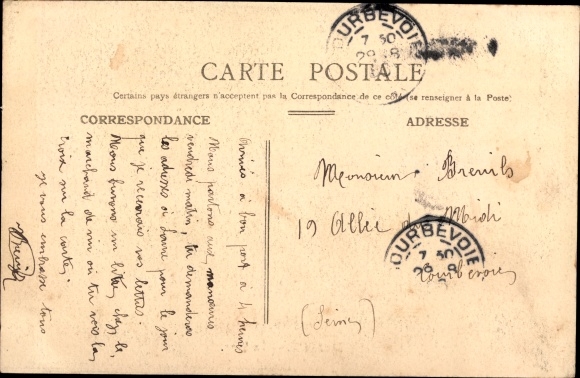 COURBEVOIE
7 50
29 8
CARTE POSTALE
Certains pays étrangers n'acceptent pas la Correspondance de ce côté (se renseigner à la Poste)
CORRESPONDANCE
Arrivés à bon port à 4 heures
Nous partons aux manœuvres
vendredi matin, tu demanderas
les adresses à pour le jour
que je recevrais vos lettres.
Nous buvons un litre chez le
marchand de vin où tu vois la
croix sur la carte.
je vous embrasse tous
ADRESSE
Monsieur Breuils
19 Allée du Midi
Courbevoie
(Seine)
COURBEVOIE
7 50
29 8